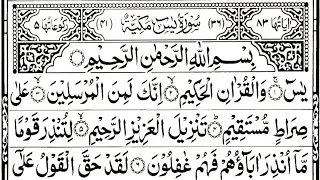 اٰیَاتُهَا ٨٣ (٣٦) سُوْرَةُ یٰسٓ مَكِّیَّةٌ (٤١) رُكُوْعَاتُهَا ٥
بِسْمِ اللّٰهِ الرَّحْمٰنِ الرَّحِیْمِ
یٰسٓ ۝ وَالْقُرْاٰنِ الْحَكِیْمِ ۝ اِنَّكَ لَمِنَ الْمُرْسَلِیْنَ ۝ عَلٰی
صِرَاطٍ مُّسْتَقِیْمٍ ۝ تَنْزِیْلَ الْعَزِیْزِ الرَّحِیْمِ ۝ لِتُنْذِرَ قَوْمًا
مَّاۤ اُنْذِرَ اٰبَآؤُهُمْ فَهُمْ غٰفِلُوْنَ ۝ لَقَدْ حَقَّ الْقَوْلُ عَلٰۤی